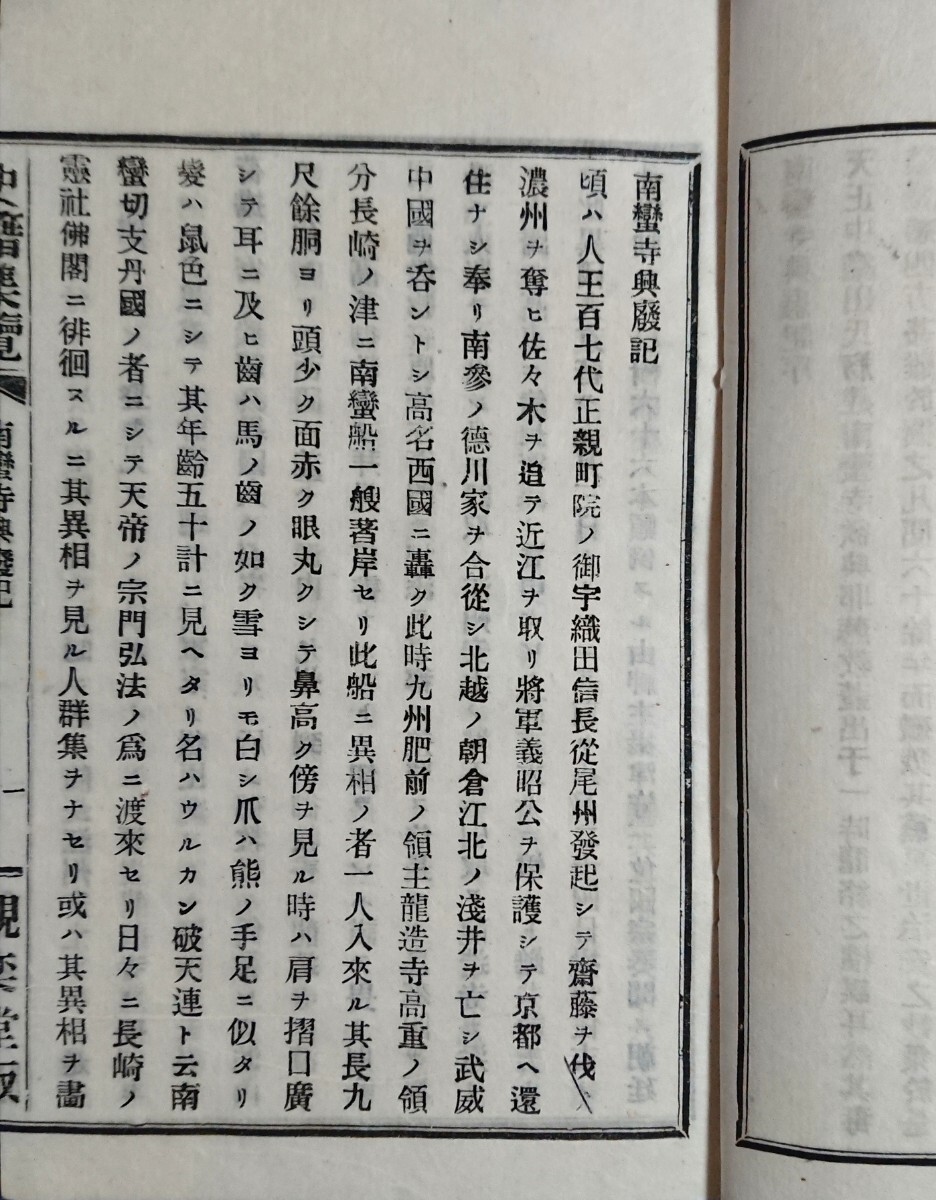 南蠻寺興廢記
頃ハ人王百七代正親町院ノ御宇織田信長從尾州發起シテ齋藤ヲ伐
濃州ヲ奪ヒ佐々木ヲ追テ近江ヲ取リ將軍義昭公ヲ保護シテ京都ヘ還
住ナシ奉リ南參ノ德川家ヲ合從シ北越ノ朝倉江北ノ淺井ヲ亡シ武威
中國ヲ呑ントシ高名西國ニ轟ク此時九州肥前ノ領主龍造寺高重ノ領
分長崎ノ津ニ南蠻船一艘著岸セリ此船ニ異相ノ者一人入來ル其長九
尺餘胴ヨリ頭少ク面赤ク眼丸クシテ鼻高ク傍ヲ見ル時ハ肩ヲ摺口廣
シテ耳ニ及ヒ齒ハ馬ノ齒ノ如ク雪ヨリモ白シ爪ハ熊ノ手足ニ似タリ
髮ハ鼠色ニシテ其年齡五十計ニ見ヘタリ名ハウルカン破天連ト云南
蠻切支丹國ノ者ニシテ天帝ノ宗門弘法ノ爲ニ渡來セリ日々ニ長崎ノ
靈社佛閣ニ徘徊スルニ其異相ヲ見ル人群集ヲナセリ或ハ其異相ヲ畵
南蠻寺興廢記
一